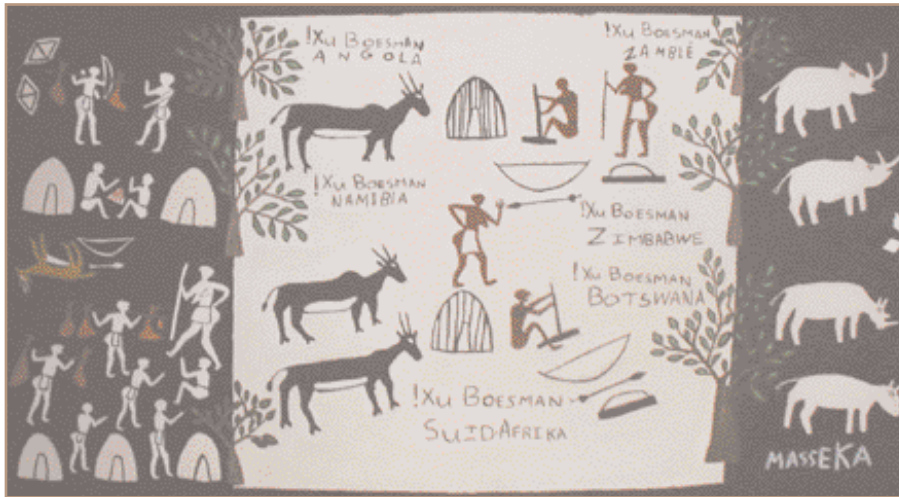 !XU BOESMAN
ANGOLA
!XU BOESMAN
ZAMBLÈ
!XU BOESMAN
NAMIBIA
!XU BOESMAN
ZIMBABWE
!XU BOESMAN
BOTSWANA
!XU BOESMAN
SUID-AFRIKA
MASSEKA